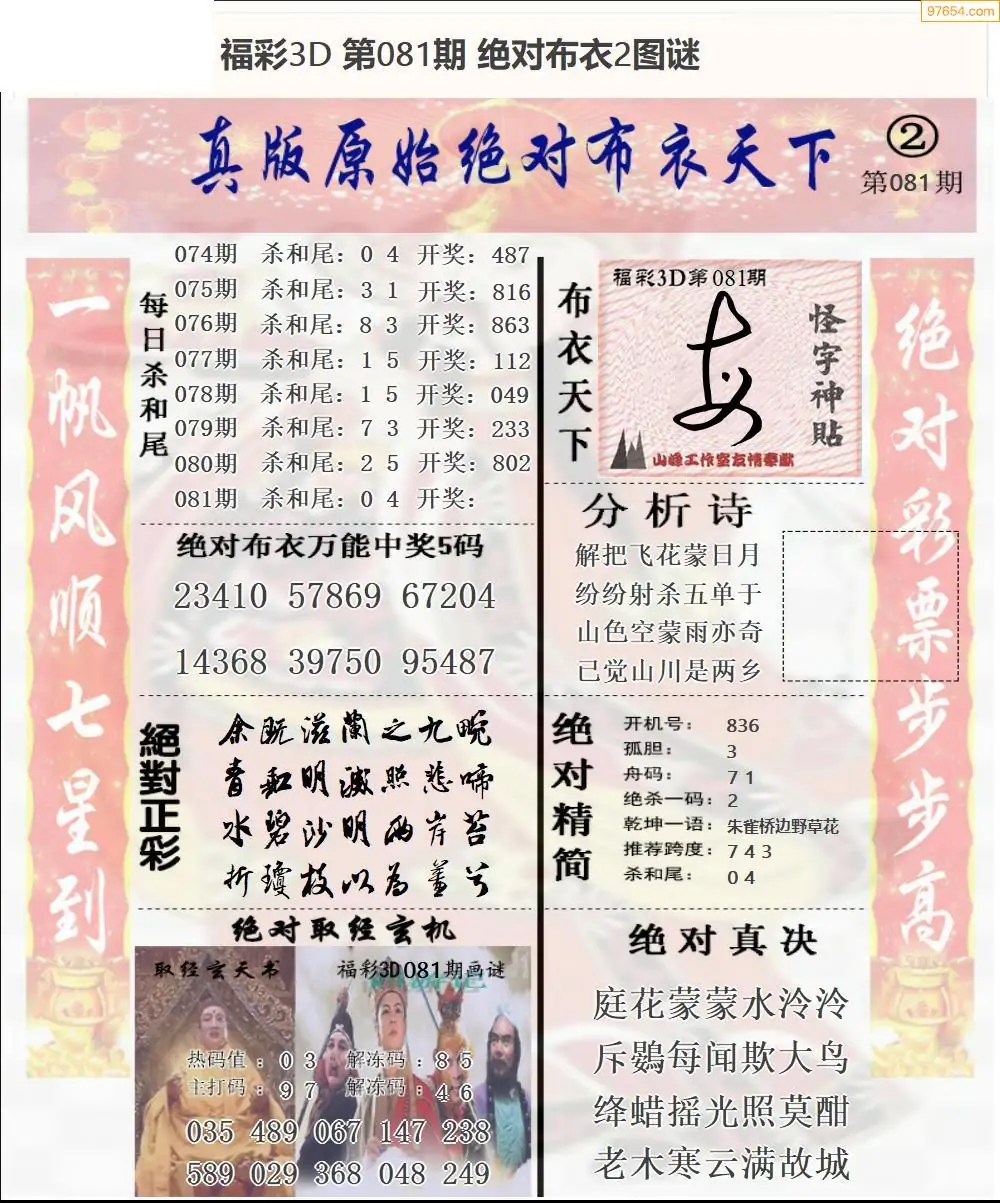 97654.com
福彩3D 第081期 绝对布衣2图谜
真版原始绝对布衣天下
②
第081期
一帆风顺七星到
每日杀和尾
074期 杀和尾：0 4 开奖：487
075期 杀和尾：3 1 开奖：816
076期 杀和尾：8 3 开奖：863
077期 杀和尾：1 5 开奖：112
078期 杀和尾：1 5 开奖：049
079期 杀和尾：7 3 开奖：233
080期 杀和尾：2 5 开奖：802
081期 杀和尾：0 4 开奖：
绝对布衣万能中奖5码
23410 57869 67204
14368 39750 95487
絕對正彩
余既滋蘭之九畹
青紅明滅照悲啼
水碧沙明两岸苔
折瓊枝以为羞兮
绝对取经玄机
取经玄天书
福彩3D081期画谜
热码值：0 3 解冻码：8 5
主打码：9 7 解冻码：4 6
035 489 067 147 238
589 029 368 048 249
布衣天下
福彩3D第081期
怪字神贴
山峰工作室友情奉献
分析诗
解把飞花蒙日月
纷纷射杀五单于
山色空蒙雨亦奇
已觉山川是两乡
绝对精简
开机号：836
孤胆：3
舟码：7 1
绝杀一码：2
乾坤一语：朱雀桥边野草花
推荐跨度：7 4 3
杀和尾：0 4
绝对真决
庭花蒙蒙水泠泠
斥鷃每闻欺大鸟
绛蜡摇光照莫酣
老木寒云满故城
绝对彩票步步高